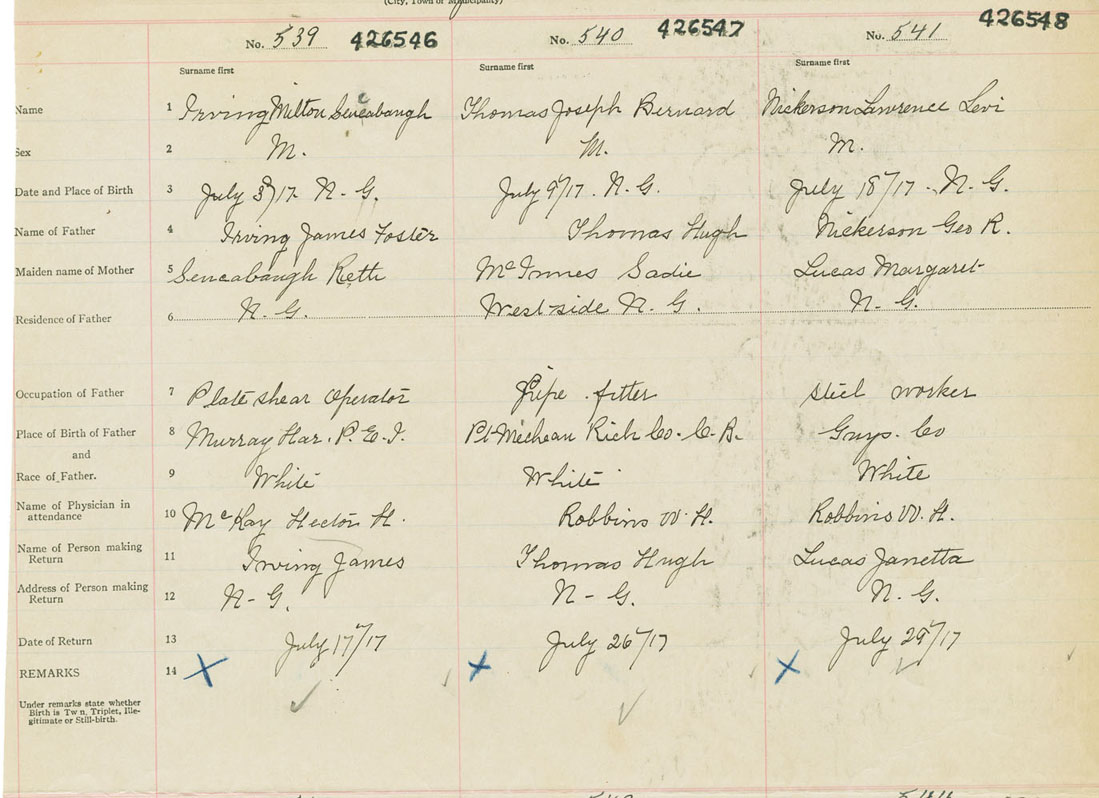 (City, Town or Municipality)
No. 539 426546 No. 540 426547 No. 541 426548
Surname first Surname first Surname first
Name 1 Irving Milton Sencabaugh Thomas Joseph Bernard Nickerson Lawrence Levi
Sex 2 M. M. M.
Date and Place of Birth 3 July 3/17 N-G. July 9/17. N.G. July 18/17 - N-G.
Name of Father 4 Irving James Foster Thomas Hugh Nickerson Geo R.
Maiden name of Mother 5 Sencabaugh McInnes Sadie Lucas Margaret
Residence of Father 6 N.G. West-side N.G. N-G.
Occupation of Father 7 Plate shear Operator Pipe fitter steel worker
Place of Birth of Father 8 Murray Har. P.E.I. Rich Co. C.B. Guys. Co
and
Race of Father. 9 White White White
Name of Physician in
attendance 10 McKay Hector H. Robbins W.H. Robbins W.H.
Name of Person making
Return 11 Irving James Thomas Hugh Lucas Janetta
Address of Person making
Return 12 N-G. N-G. N.G.
Date of Return 13 July 17/17 July 26/17 July 29/17
REMARKS 14 X X X
Under remarks state whether
Birth is Twin, Triplet, Ille-
gitimate or Still-birth.